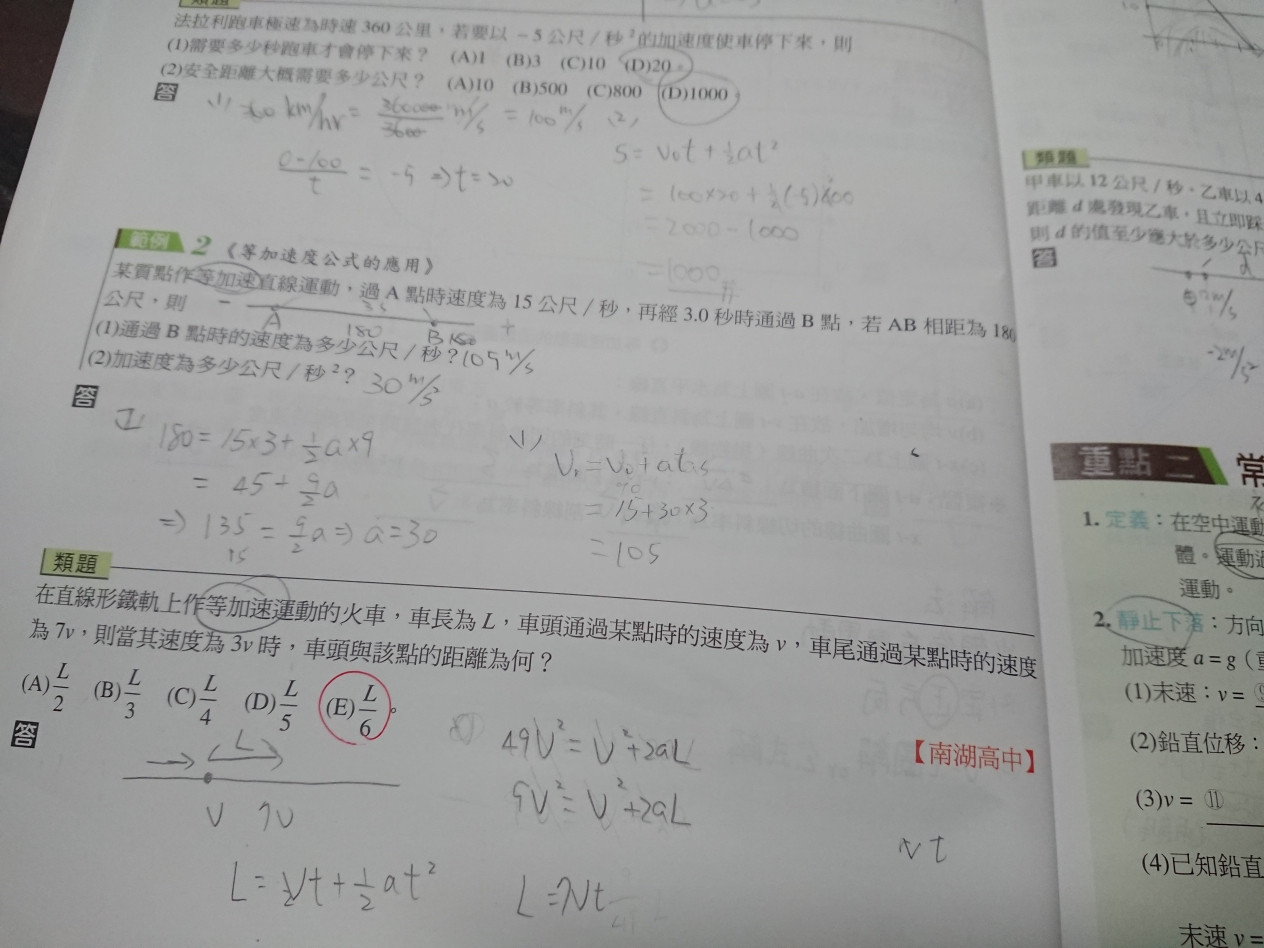 類題
法拉利跑車極速為時速 360 公里，若要以 −5 公尺／秒²的加速度使車停下來，則
(1)需要多少秒跑車才會停下來？ (A)1 (B)3 (C)10 (D)20。
(2)安全距離大概需要多少公尺？ (A)10 (B)500 (C)800 (D)1000
答
(1) 360 km/hr = 360000/3600 m/s = 100 m/s
(0-100)/t = -5 ⇒ t = 20
(2)
S = V₀t + ½at²
= 100×20 + ½(-5)400
= 2000 - 1000
= 1000
範例 2 《等加速度公式的應用》
某質點作等加速直線運動，過 A 點時速度為 15 公尺／秒，再經 3.0 秒時通過 B 點，若 AB 相距為 180
公尺，則
− A 180 B +
(1)通過 B 點時的速度為多少公尺／秒？105 m/s
(2)加速度為多少公尺／秒²？ 30 m/s²
答
180 = 15×3 + ½a×9
= 45 + 9/2 a
⇒ 135 = 9/2 a ⇒ a = 30
15
(1)
= 15+30×3
= 105
類題
在直線形鐵軌上作等加速運動的火車，車長為 L，車頭通過某點時的速度為 v，車尾通過某點時的速度
為 7v，則當其速度為 3v 時，車頭與該點的距離為何？
(A) L/2 (B) L/3 (C) L/4 (D) L/5 (E) L/6。
【南湖高中】
答
L
V 7V
49V² = V²+2aL
9V² = V²+2aL
L = Vt + ½at²
Vt
類題
甲車以 12 公尺／秒、乙車以 4
距離 d 處發現乙車，且立即踩
則 d 的值至少應大於多少公尺
答
d
重點二 常
1. 定義：在空中運動
體。運動過
運動。
2. 靜止下落：方向
加速度 a = g（重
(1)末速：v =
(2)鉛直位移：
(3)v = ⑪
(4)已知鉛直
末速 v =